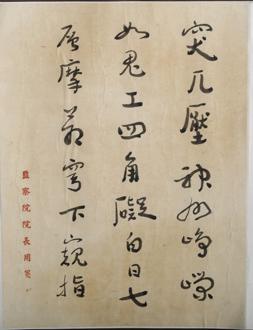 突兀壓神州崢嶸
如鬼工四角礙白日七
層摩蒼穹下窺指
監察院院長用箋